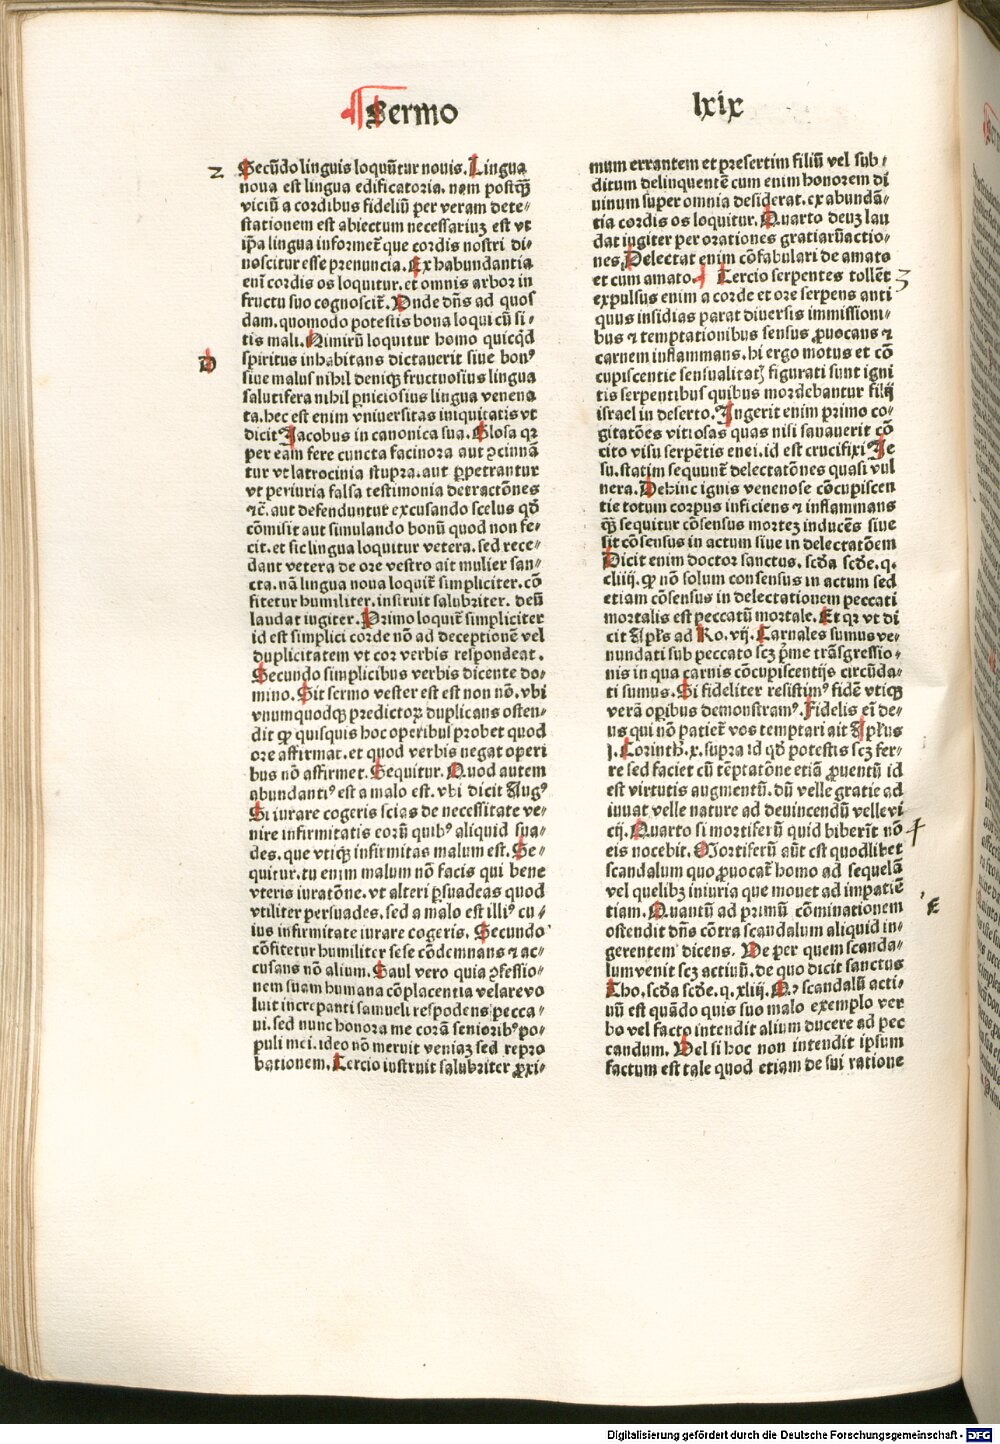 Sermo
lxix
2
Secūdo linguis loquūtur nouis. Lingua
noua est lingua edificatoria. nam postq̄
viciū a cordibus fideliū per veram dete⸗
stationem est abiectum necessariuz est vt
ip̄a lingua informet̄ que cordis nostri di⸗
noscitur esse prenuncia. Ex habundantia
enī cordis os loquitur. et omnis arbor in
fructu suo cognoscit̄. Unde dn̄s ad quos
dam. quomodo potestis bona loqui cū si⸗
tis mali. Nimirū loquitur homo quicq̄d
D
spiritus inhabitans dictauerit siue bonꝰ
siue malus nihil deniqꝫ fructuosius lingua
salutifera nihil ꝑniciosius lingua venena
ta. hec est enim vniuersitas iniquitatis vt
dicit Jacobus in canonica sua. Glosa qr
per eam fere cuncta facinora aut ꝯcinnā
tur vt latrocinia stupra. aut ꝑpetrantur
vt periuria falsa testimonia detractōnes
⁊c̄. aut defenduntur excusando scelus qd̄
cōmisit aut simulando bonū quod non fe⸗
cit. et sic lingua loquitur vetera. sed rece⸗
dant vetera de ore vestro ait mulier san⸗
cta. nā lingua noua loquit̄ simpliciter. cō
fitetur humiliter. instruit salubriter. deū
laudat iugiter. Primo loquit̄ simpliciter
id est simplici corde nō ad deceptionē vel
duplicitatem vt cor verbis respondeat.
Secundo simplicibus verbis dicente do⸗
mino. Sit sermo vester est est non nō. vbi
vnumquodqꝫ predictoꝝ duplicans osten⸗
dit ꝙ quisquis hoc operibuſ probet quod
ore affirmat. et quod verbis negat operi
bus nō affirmet. Sequitur. Quod autem
abundantiꝰ est a malo est. vbi dicit Augꝰ
Si iurare cogeris scias de necessitate ve⸗
nire infirmitatis eorū quibꝰ aliquid sua⸗
des. que vtiqꝫ infirmitas malum est. Se⸗
quitur. tu enim malum nō facis qui bene
vteris iuratōne. vt alteri ꝑsuadeas quod
vtiliter persuades. sed a malo est illiꝰ cu⸗
ius infirmitate iurare cogeris. Secundo
cōfitetur humiliter sese cōdemnans ⁊ ac⸗
cusans nō alium. Saul vero quia ꝯfessio⸗
nem suam humana cōplacentia velare vo
luit increpanti samueli respodens pecca⸗
ui. sed nunc honora me corā senioribꝰ po⸗
puli mei. ideo nō meruit veniaz sed repro
bationem. Tercio iustruit salubriter ꝓxi⸗
mum errantem et presertim filiū vel sub⸗
ditum delinquentē cum enim honorem di
uinum super omnia desiderat. ex abundā⸗
tia cordis os loquitur. Quarto deuz lau
dat iugiter per orationes gratiarūactio⸗
nes. Delectat enim cōfabulari de amato
et cum amato. Tercio serpentes tollēt
3
expulsus enim a corde et ore serpens anti
quus insidias parat diuersis immissioni⸗
bus ⁊ temptationibus sensus ꝓuocans ⁊
carnem inflammans. hi ergo motus et cō
cupiscentie sensualitatꝭ figurati sunt igni
tis serpentibus quibus mordebantur filij
israel in deserto. Ingerit enim primo co⸗
gitatōes vitiosas quas nisi sanauerit cō
cito visu serpētis enei. id est crucifixi Je
su. statim sequunt̄ delectatōnes quasi vul
nera. Dehinc ignis venenose cōcupiscen
tie totum corpus inficiens ⁊ inflammans
q̄ꝫ sequitur cōsensus mortez inducēs siue
sit cōsensus in actum siue in delectatōem
Dicit enim doctor sanctus. scd̄a scd̄e. q.
cliiij. ꝙ nō solum consensus in actum sed
etiam cōsensus in delectationem peccati
mortalis est peccatū mortale. Et qr vt di
cit Apl̄s ad Ro. vij. Carnales sumus ve⸗
nundati sub peccato scꝫ p̄me trāsgressio⸗
nis in qua carnis cōcupiscentijs circūda⸗
ti sumus. Si fideliter resistimꝰ fidē vtiqꝫ
verā oꝑibus demonstramꝰ. Fidelis ei de⸗
us qui nō patiet̄ vos temptari ait Apl̄us
j. Corinth. x. supra id qd̄ potestis scꝫ fer⸗
re sed faciet cū tēptatōne etiā ꝓuentū id
est virtutis augmentū. dū velle gratie ad
iuuat velle nature ad deuincendū velle vi
cij. Quarto si mortiferū quid biberīt nō
4
eis nocebit. Mortiferū aūt est quodlibet
scandalum quo ꝓuocat̄ homo ad sequelā
vel quelibꝫ iniuria que mouet ad impatiē
tiam. Quantū ad primū cōminationem
E
ostendit dn̄s cōtra scandalum aliquid in⸗
gerentem dicens. Ve per quem scanda⸗
lum venit scꝫ actiuū. de quo dicit sanctus
Tho. scd̄a scd̄e. q. xliij. Qꝫ scandalū acti⸗
uū est quādo quis suo malo exemplo ver
bo vel facto intendit alium ducere ad pec
candum. Vel si hoc non intendit ipsum
factum est tale quod etiam de sui ratione
Digitalisierung gefördert durch die Deutsche Forschungsgemeinschaft - DFG